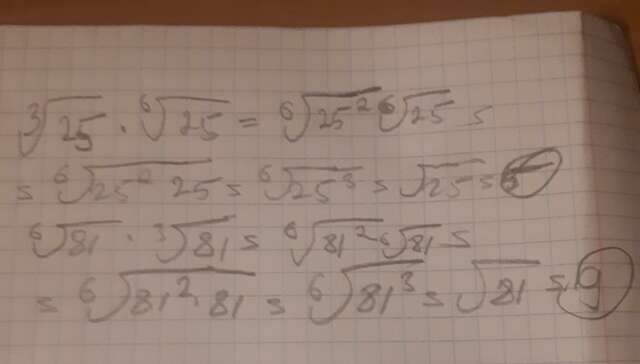 ∛25 · ⁶√25 = ⁶√25² ⁶√25 =
= ⁶√25² 25 = ⁶√25³ = √25 = 5
⁶√81 · ∛81 = ⁶√81² ⁶√81 =
= ⁶√81² · 81 = ⁶√81³ = √81 = 9